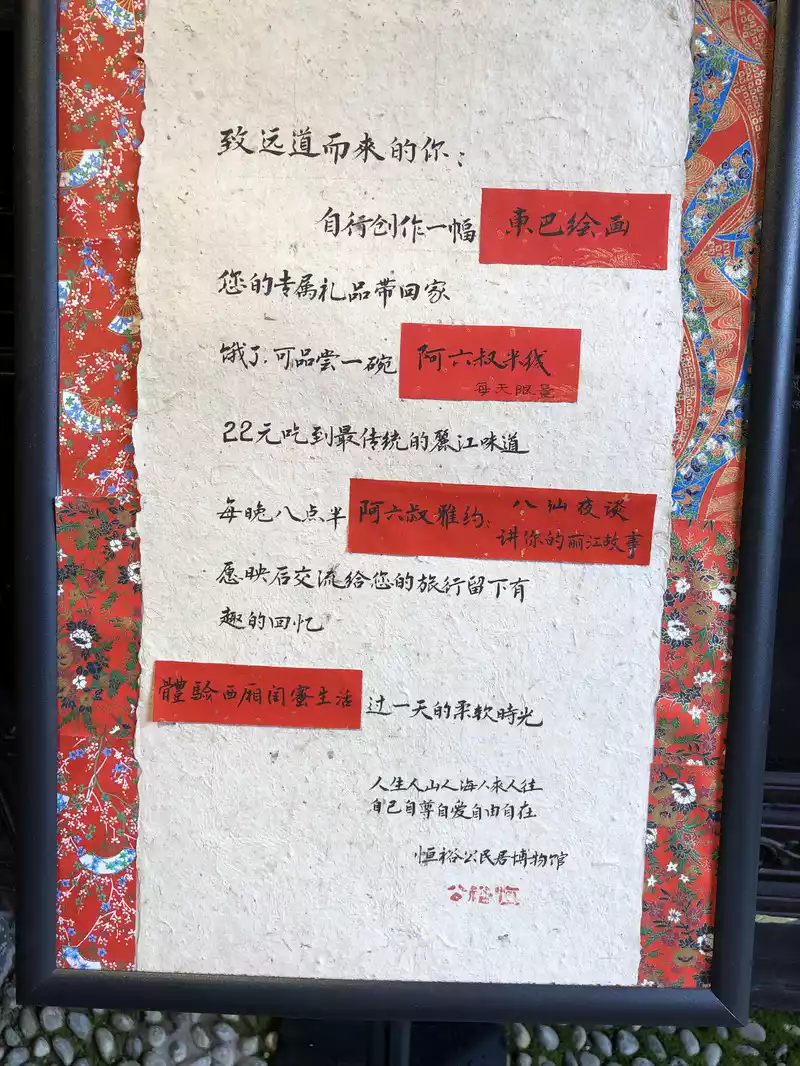 致远道而來的你：
自行创作一幅 東巴绘画
您的专属礼品带回家
饿了,可品尝一碗 阿六叔米线
每天限量
22元吃到最传统的麗江味道
每晚八点半 阿六叔雅约：八仙夜谈
讲你的丽江故事
愿映后交流给您的旅行留下有
趣的回忆
體驗西厢闺蜜生活 过一天的柔软時光
人生人山人海人來人往
自己自尊自爱自由自在
恒裕公民居博物馆
公裕恒